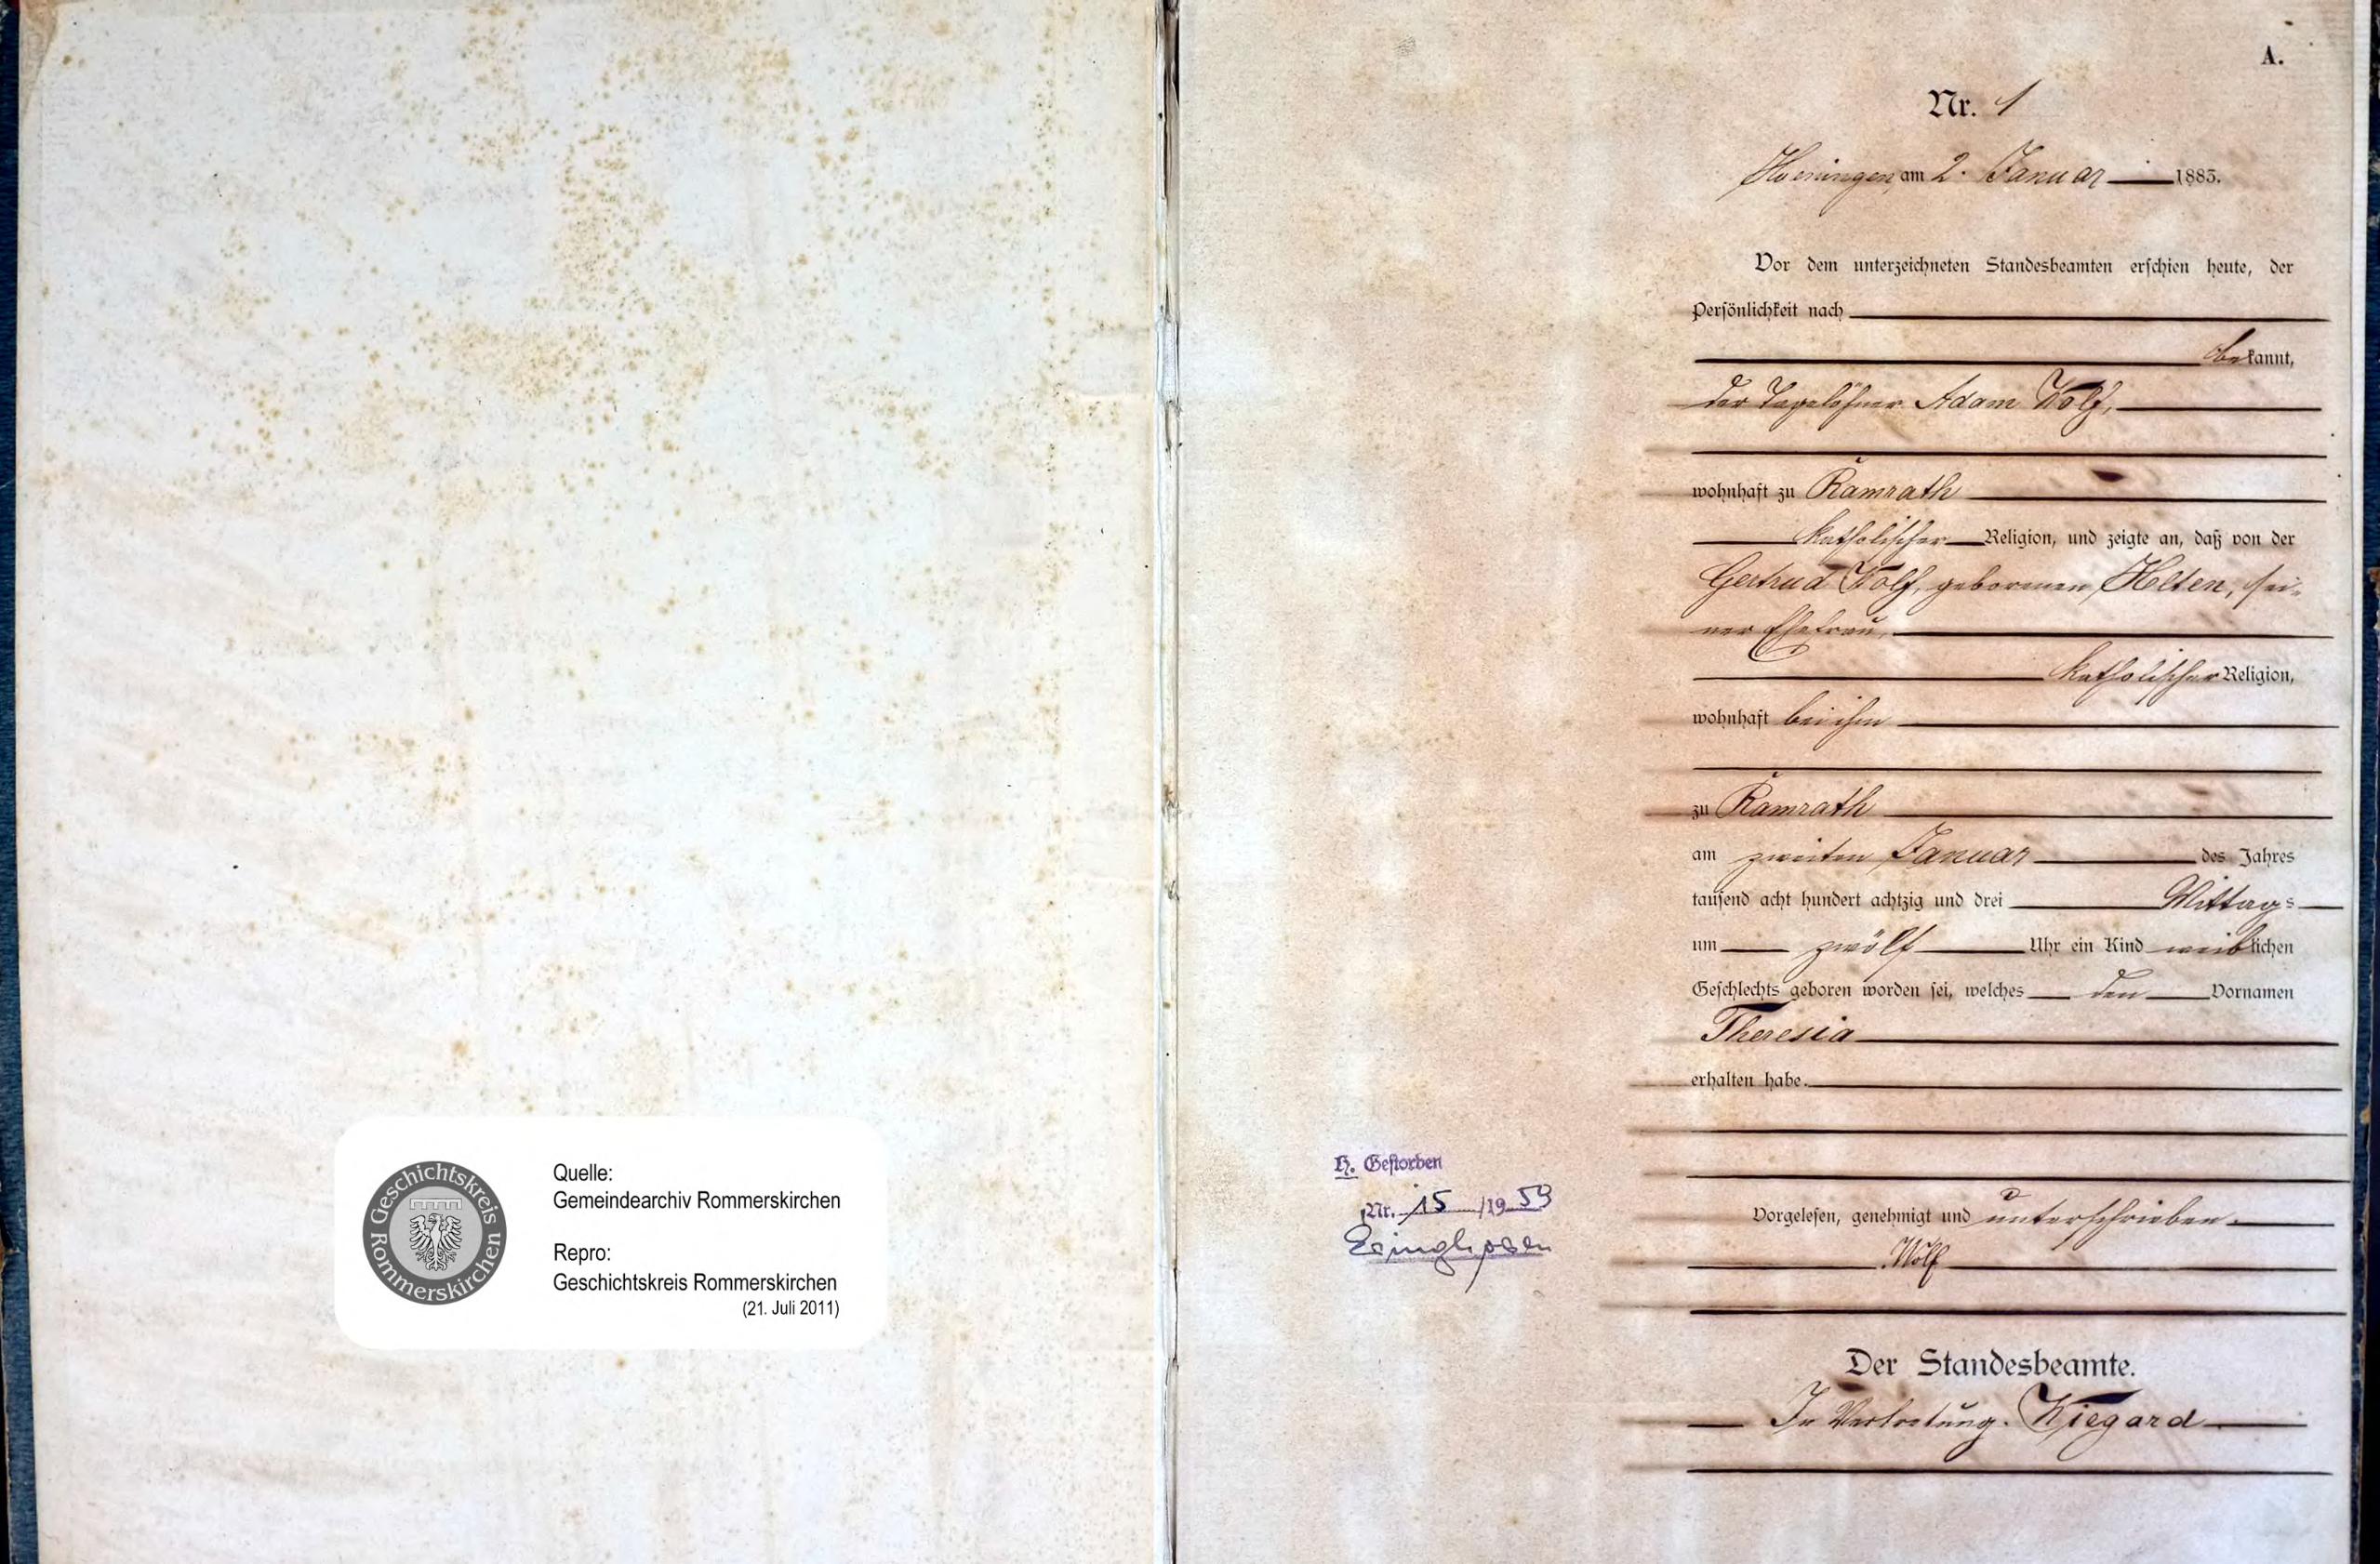 Geschichtskreis
Rommerskirchen
Quelle:
Gemeindearchiv Rommerskirchen
Repro:
Geschichtskreis Rommerskirchen
(21. Juli 2011)
A.
Nr. 1
Hoeningen am 2. Januar 1883.
Vor dem unterzeichneten Standesbeamten erschien heute, der
Persönlichkeit nach
bekannt,
der Tagelöhner Adam Wolf,
wohnhaft zu Ramrath
katholischer Religion, und zeigte an, daß von der
Gertrud Wolf, geborenen Helten, sei-
ner Ehefrau,
katholischer Religion,
wohnhaft bei ihm
zu Ramrath
am zweiten Januar des Jahres
tausend acht hundert achtzig und drei Mittags
um zwölf Uhr ein Kind weiblichen
Geschlechts geboren worden sei, welches den Vornamen
Theresia
erhalten habe.
H. Gestorben
Nr. 15 /1959
Vorgelesen, genehmigt und unterschrieben.
Wolf
Der Standesbeamte.
In Vertretung. Wiegard